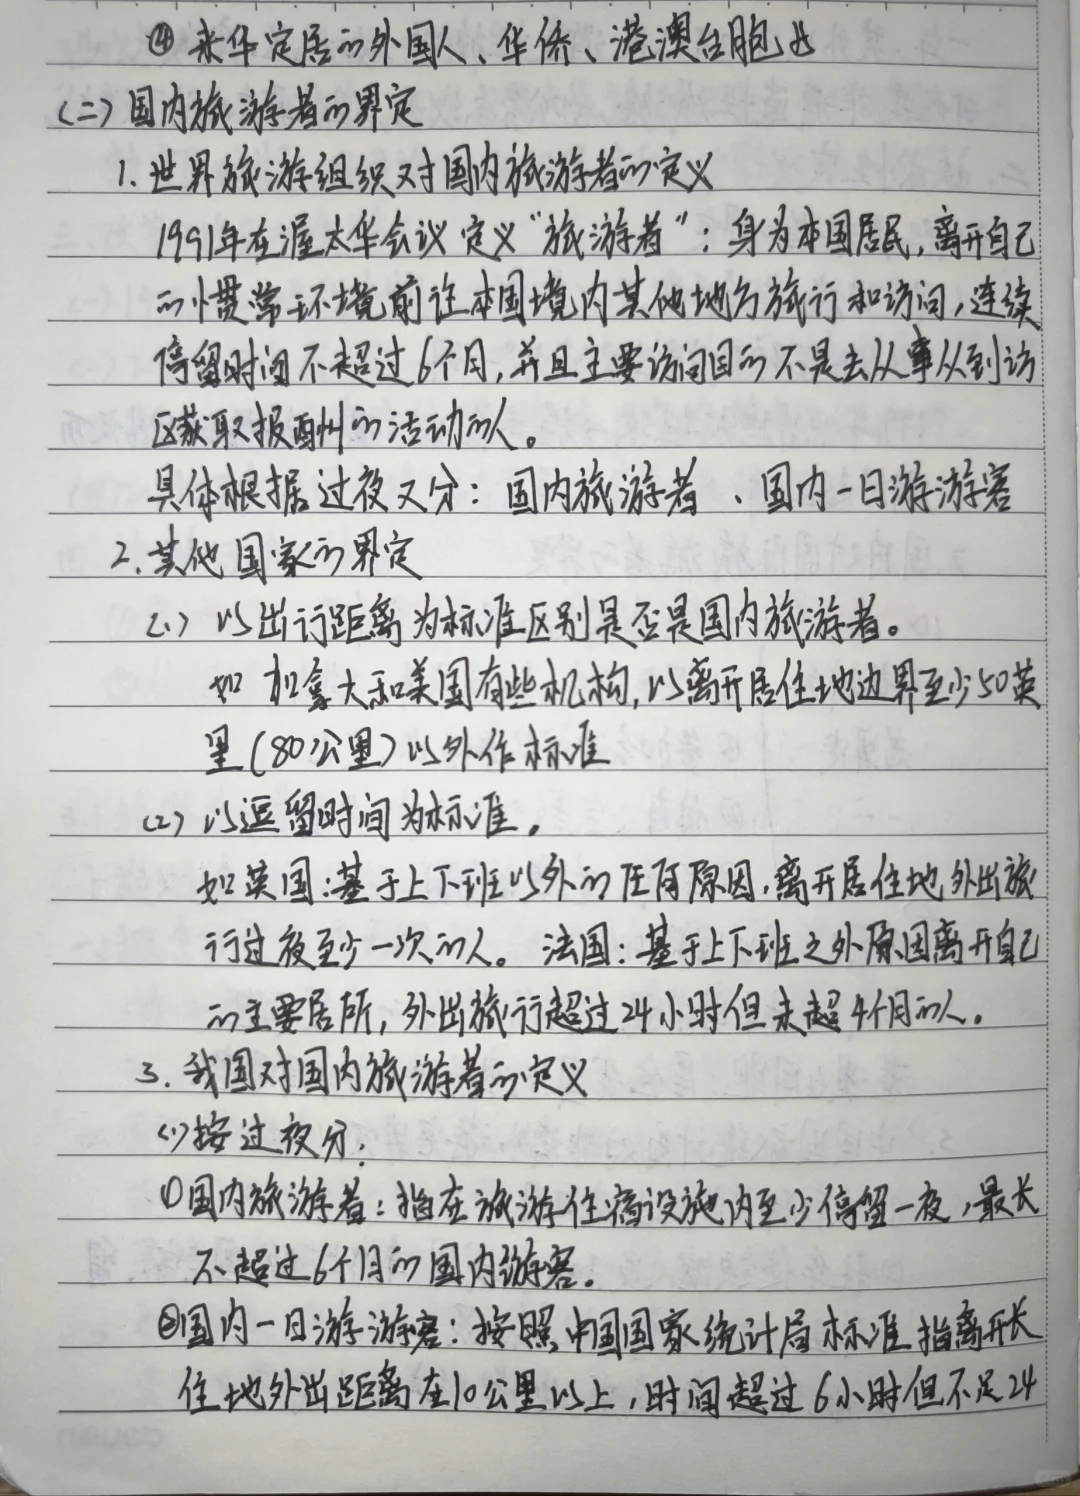 ④来华定居的外国人、华侨、港澳台胞
(二)国内旅游者的界定
1.世界旅游组织对国内旅游者的定义
1991年在渥太华会议定义“旅游者”:身为本国居民,离开自己
的惯常环境前往本国境内其他地方旅行和访问,连续
停留时间不超过6个月,并且主要访问目的不是去从事从到访
区获取报酬的活动的人。
具体根据过夜又分:国内旅游者、国内一日游游客
2.其他国家的界定
(1)以出行距离为标准区别是否是国内旅游者。
如加拿大和美国有些机构,以离开居住地边界至少50英
里(80公里)以外作标准
(2)以逗留时间为标准。
如英国:基于上下班以外的任何原因,离开居住地外出旅
行过夜至少一次的人。法国:基于上下班之外原因离开自己
的主要居所,外出旅行超过24小时但未超4个月的人。
3.我国对国内旅游者的定义
(1)按过夜分:
①国内旅游者:指在旅游住宿设施内至少停留一夜,最长
不超过6个月的国内游客。
②国内一日游游客:按照中国国家统计局标准指离开长
住地外出距离在10公里以上,时间超过6小时但不足24